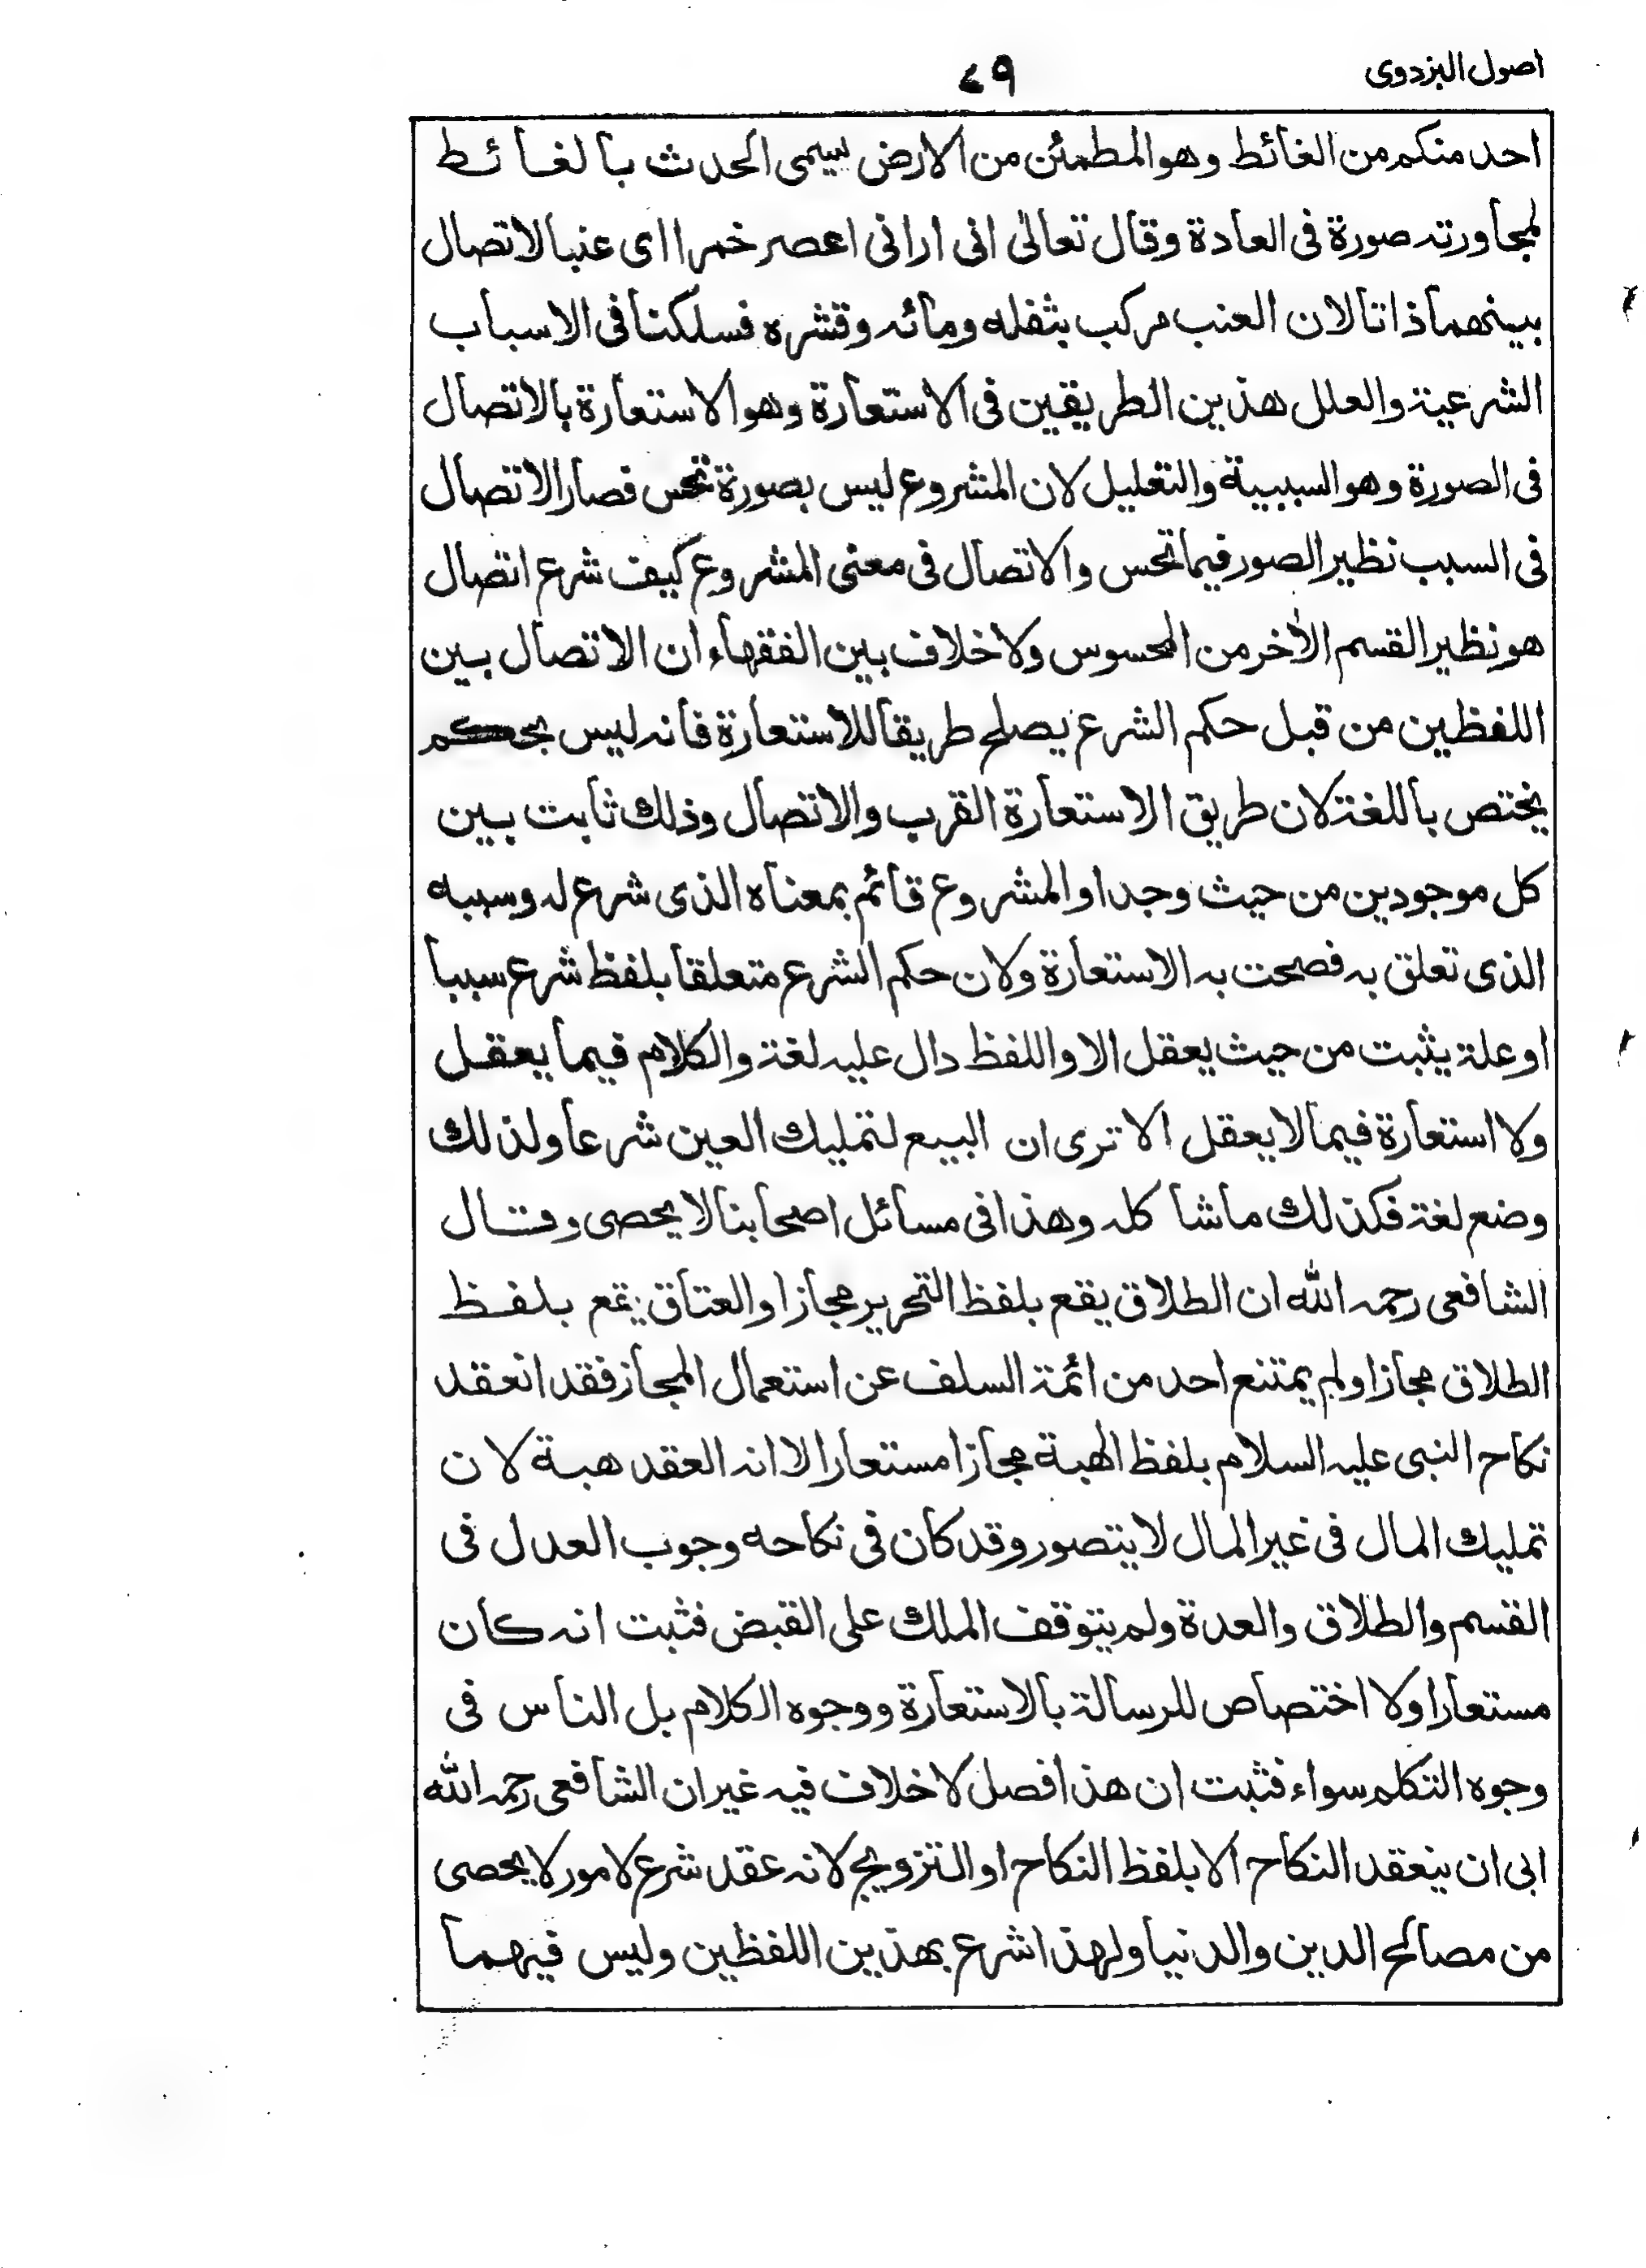 اصول البزدوى
٧٩
احد منكم من الغائط وهو المطمئن من الارض يسمى الحدث بالغائط
لمجاورته صورة فى العادة وقال تعالى انى ارانى اعصر خمرا اى عنبا لاتصال
بينهما ذاتا لان العنب مركب بثفله ومائه وقشره فسلكنا فى الاسباب
الشرعية والعلل هذين الطريقين فى الاستعارة وهو الاستعارة بالاتصال
فى الصورة وهو السببية والتعليل لان المشروع ليس بصورة تحس فصار الاتصال
فى السبب نظير الصور فيما تحس والاتصال فى معنى المشروع كيف شرع اتصال
هو نظير القسم الأخر من المحسوس ولا خلاف بين الفقهاء ان الاتصال بين
اللفظين من قبل حكم الشرع يصلح طريقا للاستعارة فانه ليس بحكم
يختص باللغة لان طريق الاستعارة القرب والاتصال وذلك ثابت بين
كل موجودين من حيث وجدا والمشروع قائم بمعناه الذى شرع له وسببه
الذى تعلق به فصحت به الاستعارة ولان حكم الشرع متعلقا بلفظ شرع سببا
او علة يثبت من حيث يعقل الا واللفظ دال عليه لغة والكلام فيما يعقل
ولا استعارة فيما لا يعقل الا ترى ان البيع لتمليك العين شرعا ولذلك
وضع لغة فكذلك ما شاكله وهذا فى مسائل اصحابنا لا يحصى وقال
الشافعى رحمه الله ان الطلاق يقع بلفظ التحرير مجازا والعتاق يقع بلفظ
الطلاق مجازا ولم يمتنع احد من ائمة السلف عن استعمال المجاز فقد انعقد
نكاح النبى عليه السلام بلفظ الهبة مجازا مستعارا لا انه العقد هبة لان
تمليك المال فى غير المال لا يتصور وقد كان فى نكاحه وجوب العدل فى
القسم والطلاق والعدة ولم يتوقف الملك على القبض فثبت انه كان
مستعارا ولا اختصاص للرسالة بالاستعارة ووجوه الكلام بل الناس فى
وجوه التكلم سواء فثبت ان هذا فصل لا خلاف فيه غير ان الشافعى رحمه الله
ابى ان ينعقد النكاح الا بلفظ النكاح او التزويج لانه عقد شرع لامور لا يحصى
من مصالح الدين والدنيا ولهذا شرع بهذين اللفظين وليس فيهما